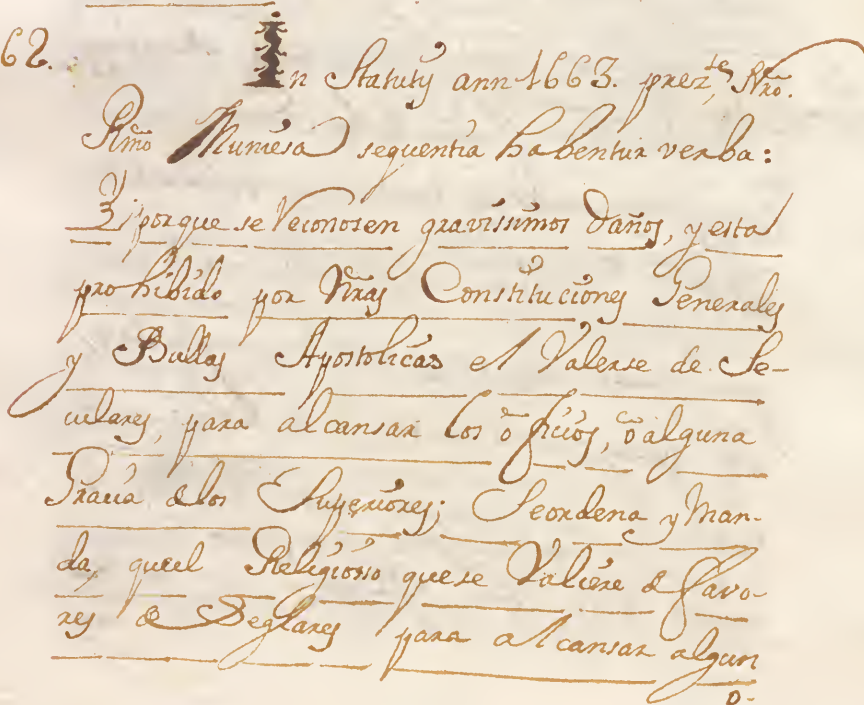 62. In Statutis ann 1663. prez.te, Nro.
Rmo Muniesa sequentia habentur verba:
Y porque se reconosen gravissimos daños, y esta
prohibido por Nras Constituciones Generales
y Bullas Apostolicas el Valerse de Se-
culares, para alcansar los oficios, o alguna
Gracia de los Superiores; Se ordena y Man-
da, que el Religiosso que se Valiere de favo-
res de Seglares para alcansar algun
o-